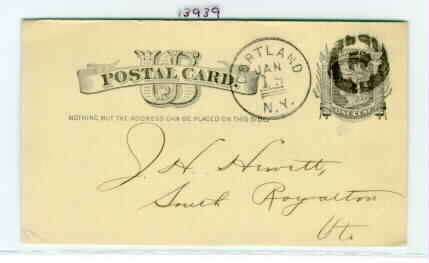 13939
US
POSTAL CARD.
CORTLAND
JAN
N.Y.
NOTHING BUT THE ADDRESS CAN BE PLACED ON THIS SIDE.
ONE CENT
J. H. Hewitt,
South Royalton
Vt.